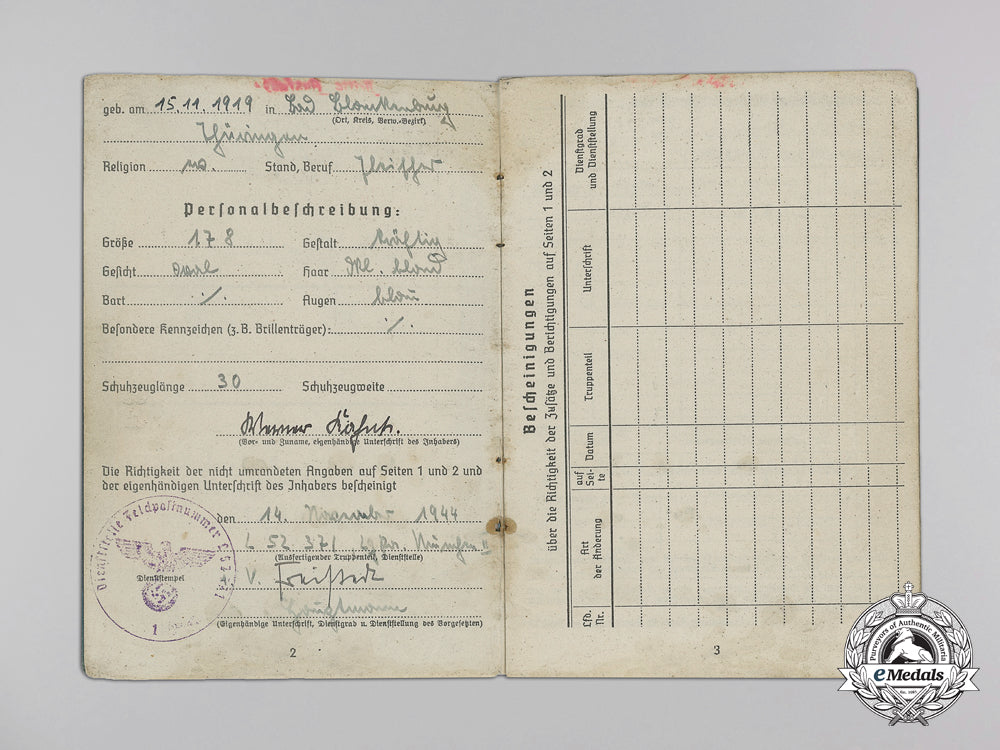 geb. am 15.11.1919 in Bad Blankenburg
(Ort, Kreis, Verw.-Bezirk)
Thüringen
Religion Stand, Beruf Fleischer
Personalbeschreibung:
Größe 178 Gestalt kräftig
Gesicht oval Haar dkl. blond
Bart ·/. Augen blau
Besondere Kennzeichen (z. B. Brillenträger): ·/.
Schuhzeuglänge 30 Schuhzeugweite
Werner
(Vor- und Zuname, eigenhändige Unterschrift des Inhabers)
Die Richtigkeit der nicht umrandeten Angaben auf Seiten 1 und 2 und
der eigenhändigen Unterschrift des Inhabers bescheinigt
den 14. November 1944
L 52 371 Lg.Pa. München II
(Ausfertigender Truppenteil, Dienststelle)
Dienststelle Feldpostnummer
Dienststempel
V.
Hauptmann
(Eigenhändige Unterschrift, Dienstgrad u. Dienststellung des Vorgesetzten)
2
Bescheinigungen
über die Richtigkeit der Zusätze und Berichtigungen auf Seiten 1 und 2
Lfd. Nr.
Art der Änderung
auf Seite
Datum
Truppenteil
Unterschrift
Dienstgrad und Dienststellung
3
Purveyors of Authentic Militaria
eMedals